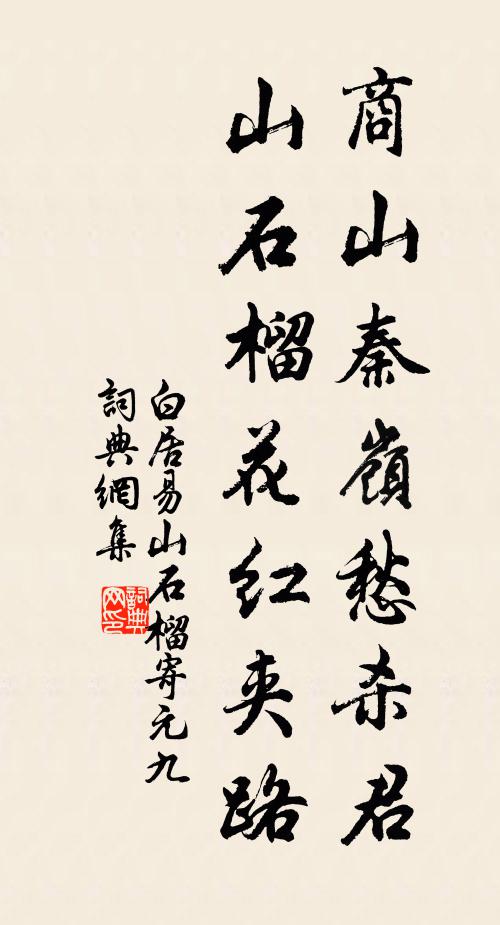 商山秦嶺愁杀君
山石榴花红夹路
白居易山石榴寄元九
詞典網集
詞典网印